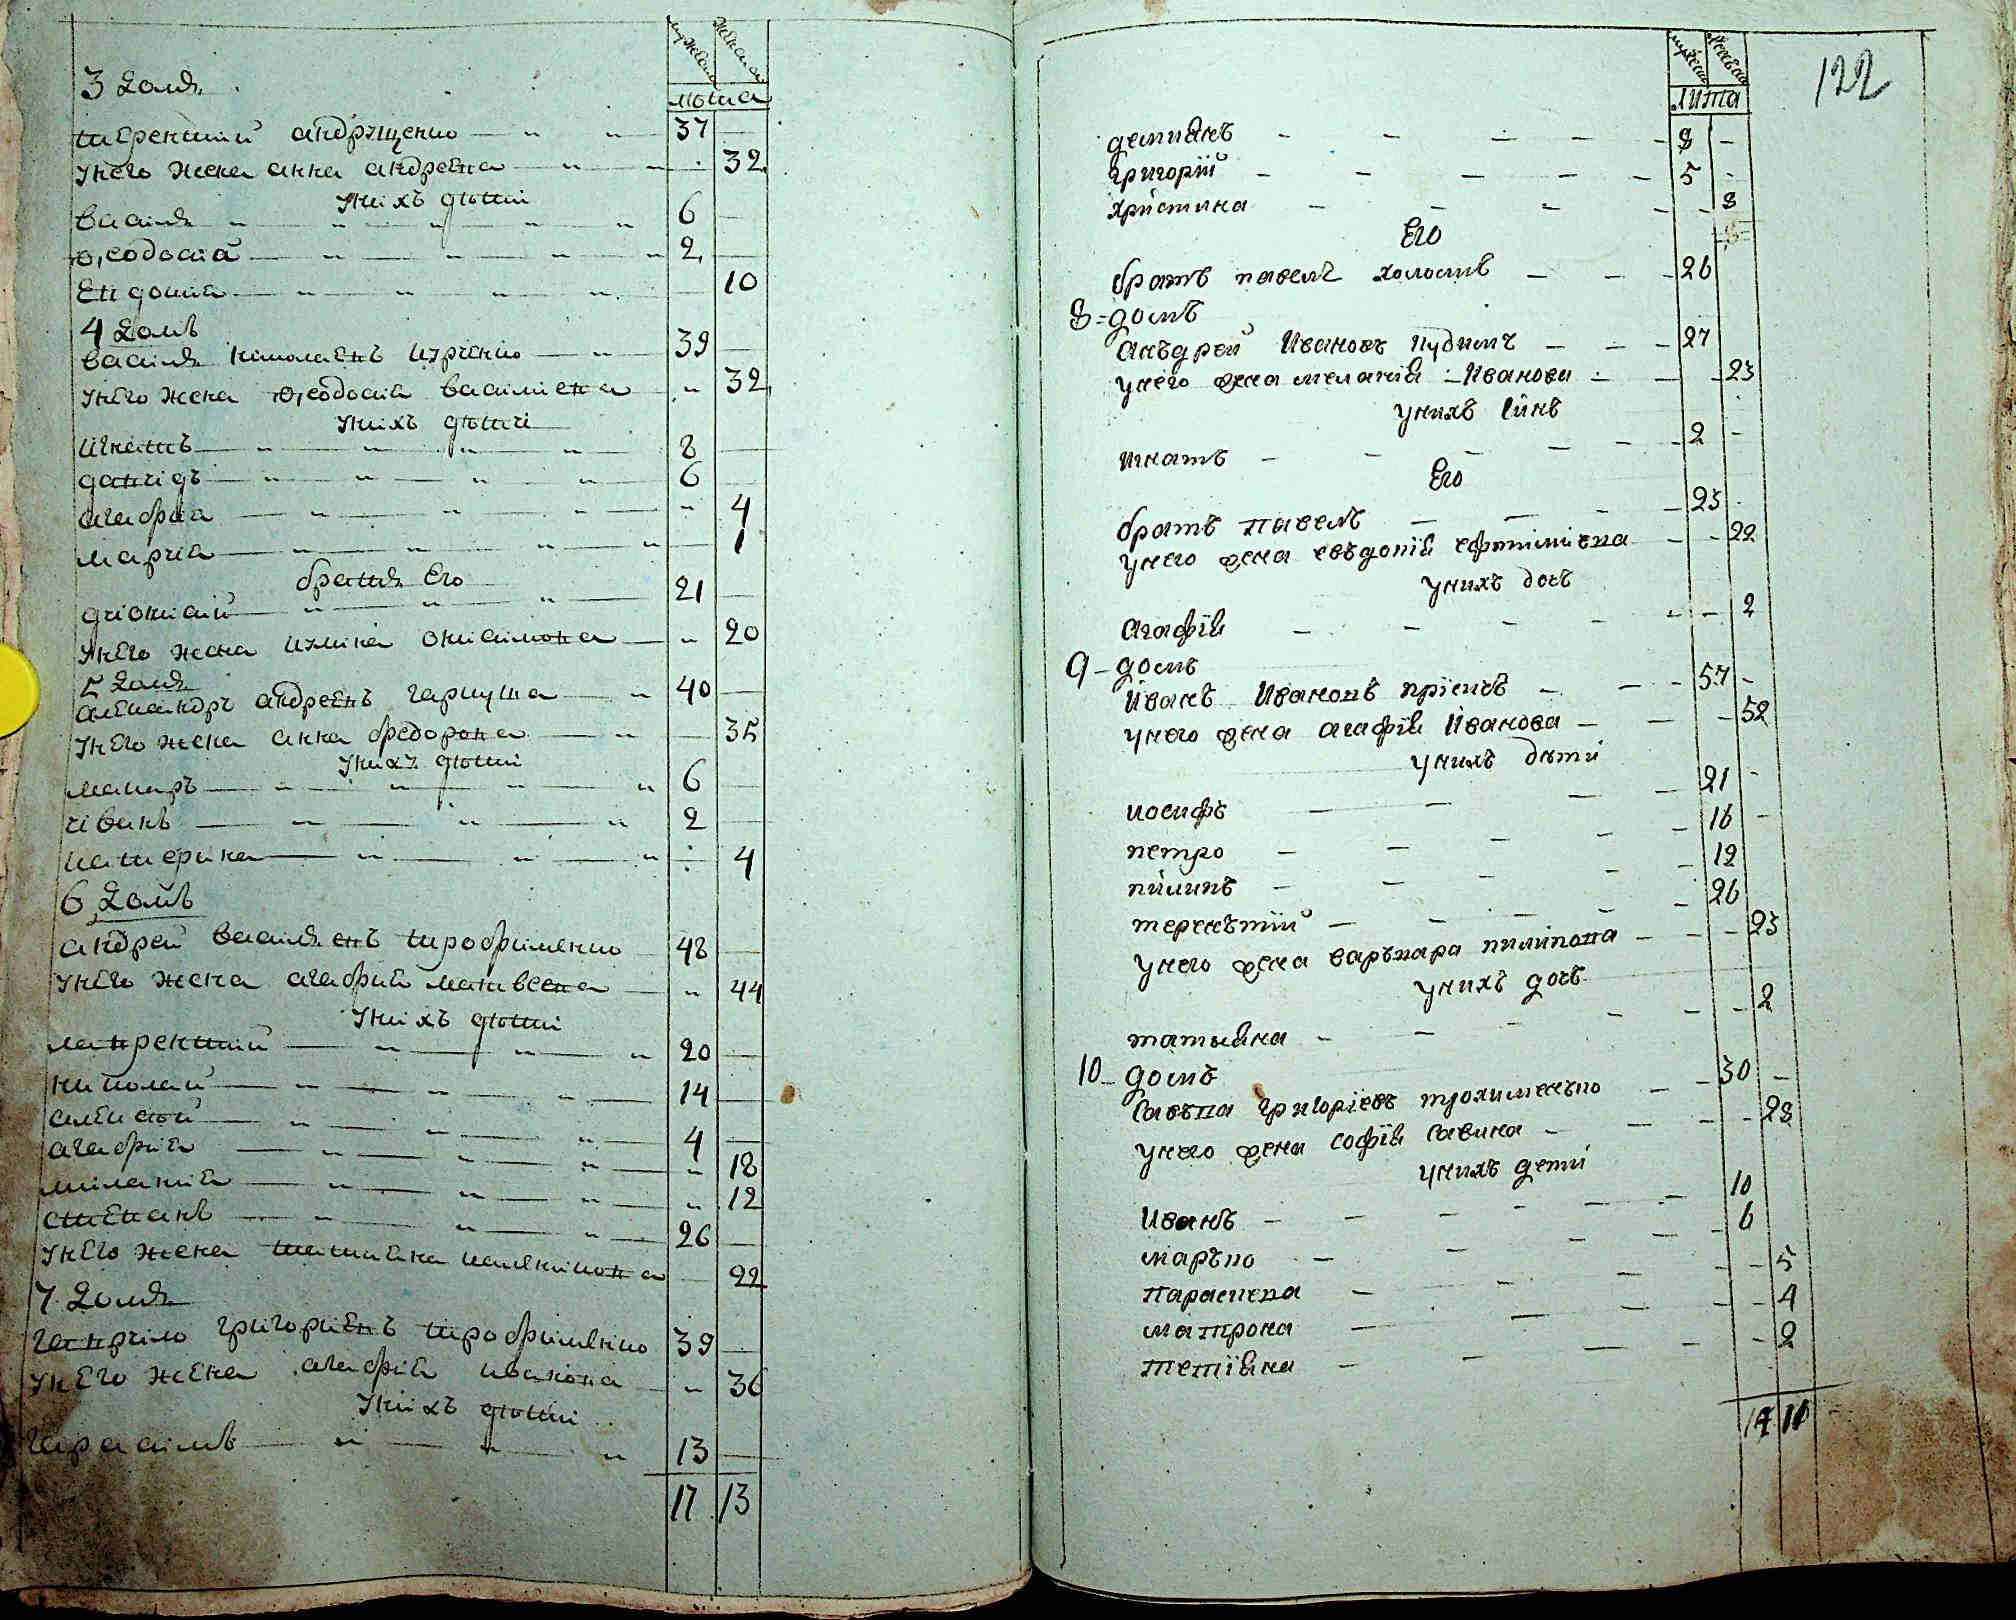 мужеска женска
люта
3 Домъ
терентий андрущенко 37
унего жена анна андреева 32
унихъ дюти
василь 6
ѳеодосий 2
евдокия 10
4 Домъ
василь николаевъ 39
унего жена ѳеодосия василиева 32
унихъ дюти
игнатъ 8
давидъ 6
агафия 4
мария 1
братья его
дионисий 21
унего жена онисимова 20
5 Домъ
александръ андреевъ гаркуша 40
унего жена анна федорова 35
унихъ дюти
макаръ 6
иванъ 2
катерина 4
6 Домъ
андрей василевъ трофименко 48
унего жена агафия матвеева 44
унихъ дюти
лаврентий 20
николай 14
алексей 4
агафия 18
милания 12
степанъ 26
унего жена татияна 22
7 Домъ
гаврило григориевъ трофименко 39
унего жена агафия иванова 36
унихъ дюти
гарасимъ 13
17 13
122
мужеска женска
лита
демиянъ 8
григорій 5
христина 8
Его
братъ павелъ холостъ 26
8 = домъ
Анъдрей Ивановъ Кудимъ 27
унего жена меланія Иванова 23
унихъ синъ
игнатъ 2
Его
братъ павелъ 25
унего жена евъдокія 22
унихъ дочъ
Агафія 2
9 - домъ
Иванъ Ивановъ 57
унего жена агафія Иванова 52
унихъ дѣти
иосифъ 21
петро 16
пилипъ 12
терентій 26
унего жена варъвара пилипова 23
унихъ дочъ
татьяна 2
10 - домъ
Савъва григоріевъ трохименъко 30
унего жена софія савина 28
унихъ дети
Иванъ 10
маръко 6
параскева 5
матрона 4
тетіяна 2
14 11